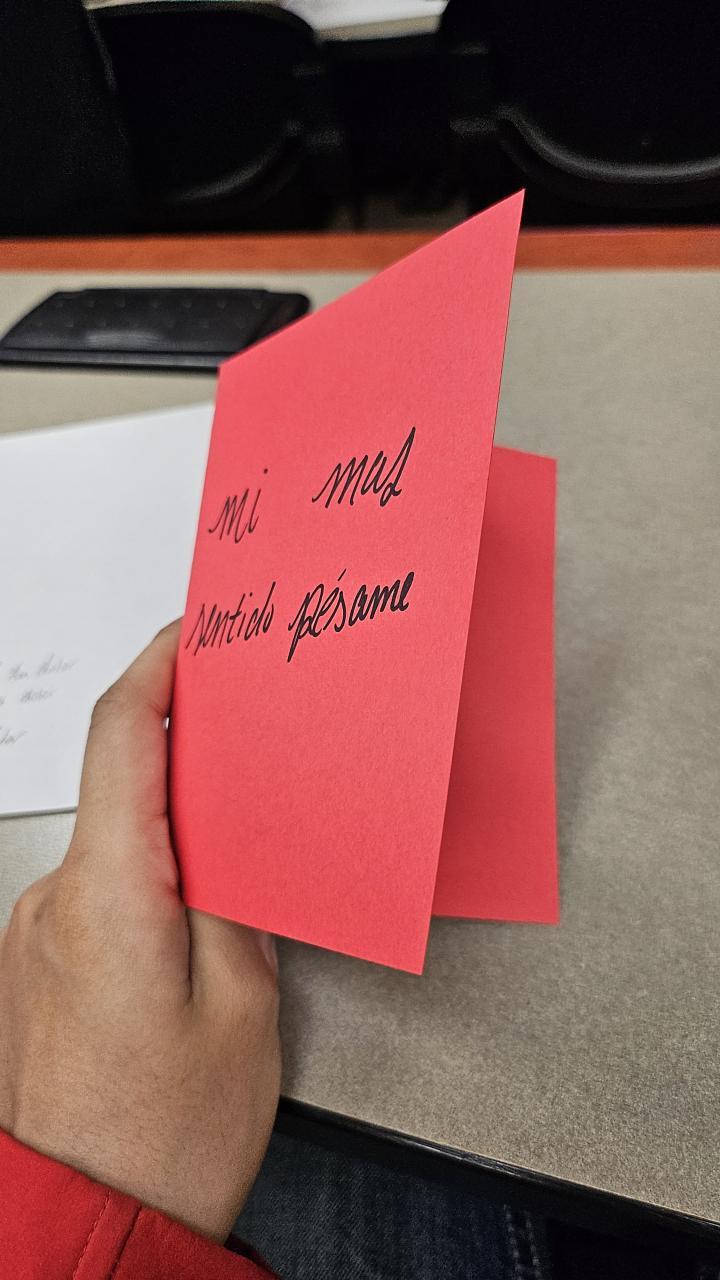 mi mas
sentido pésame